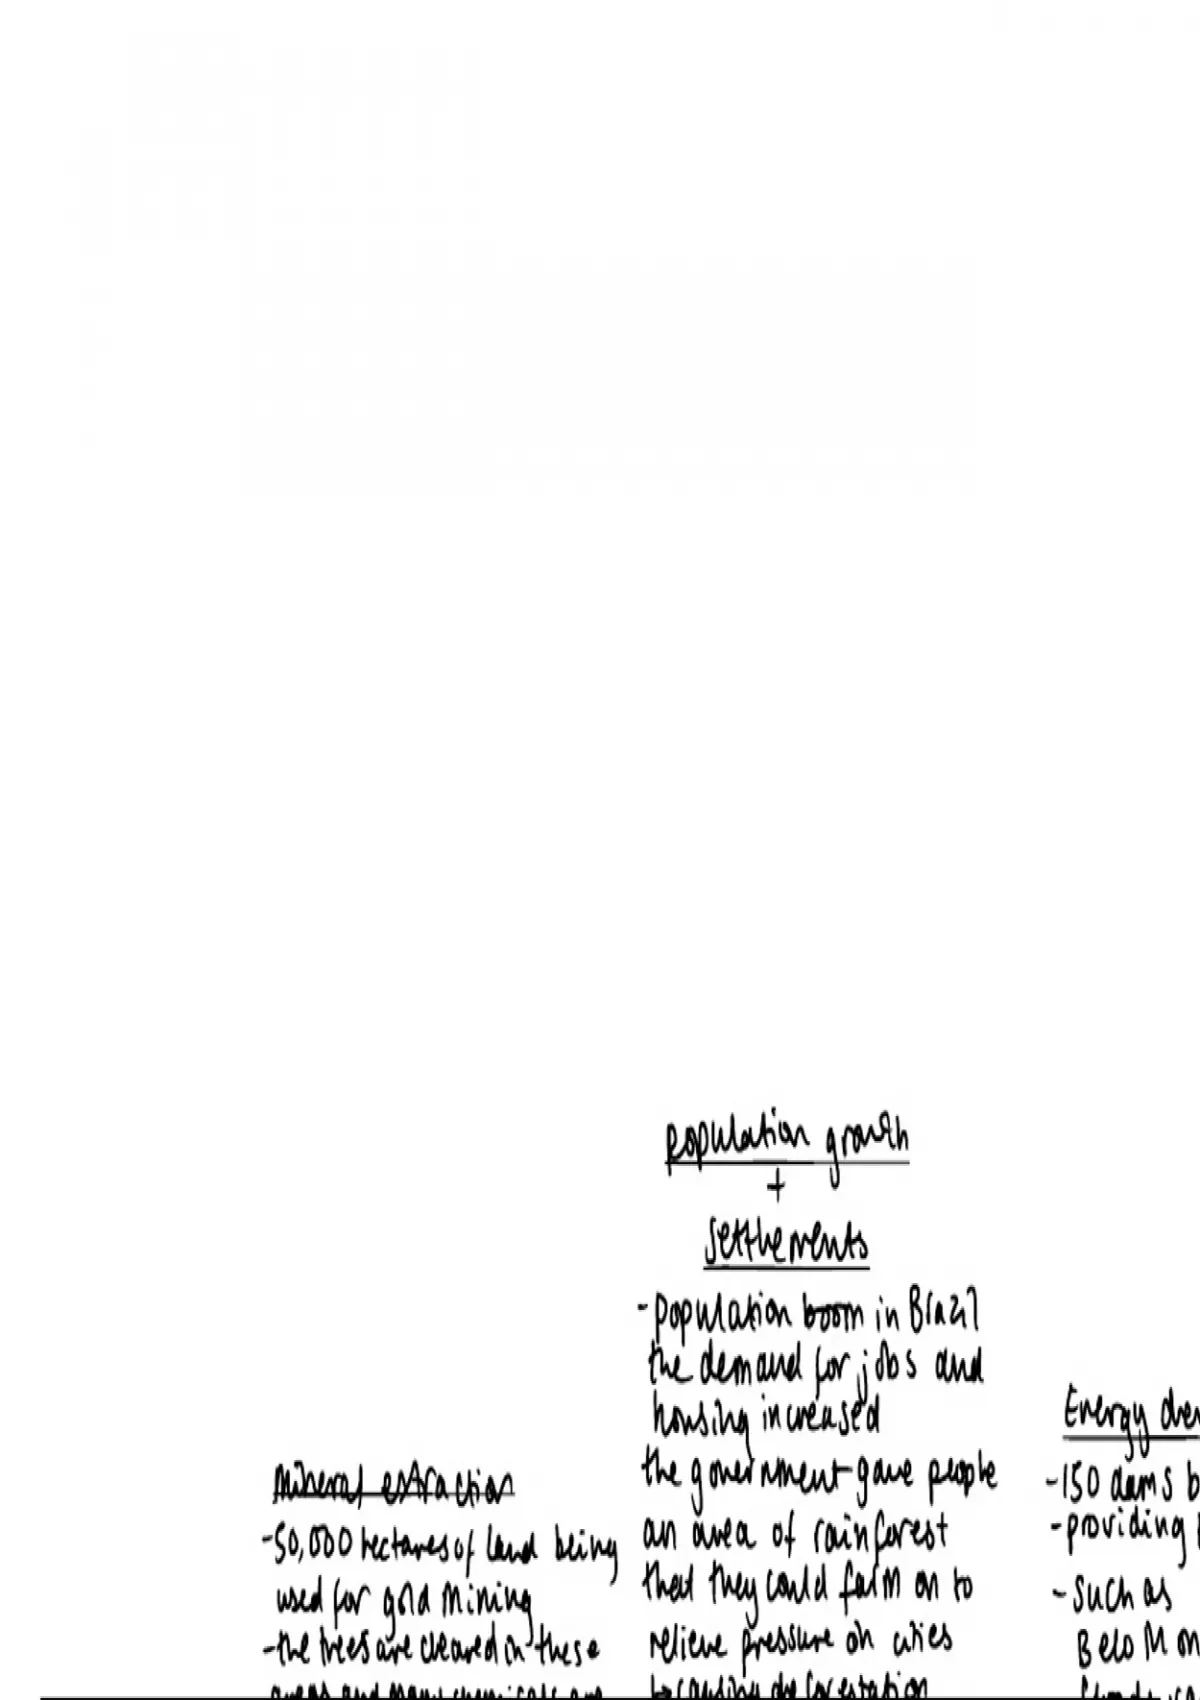 Population growth
+
Settlements
-population boom in Brazil
the demand for jobs and
housing increased
the government gave people
an area of rainforest
that they could farm on to
relieve pressure on cities
deforestation
Mineral extraction
-50,000 hectares of land being
used for gold mining
-the trees are cleared in these
areas and many chemicals are
Energy
-150 dams
-providing
-such as
Belo